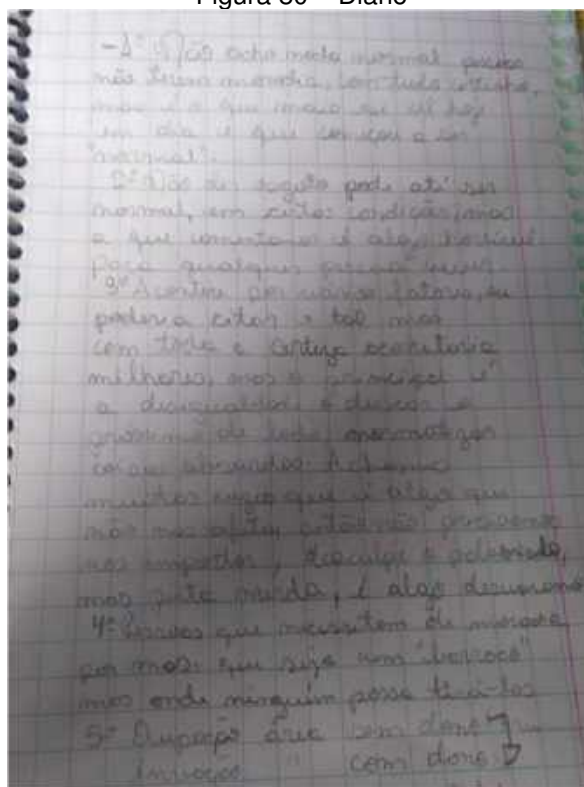 Figura 30 – Diário
-1ª Não acho nada normal pessoa
não terem moradia, com tudo certinho,
mas é o que mais se vê hoje
em dia e que começou a ser
"normal".
2ª Não de sujeito pode até ser
normal, em certas condição, mas
o que comentamos é algo horrível
para qualquer pessoa
3ª Acontece por vários fatores, eu
poderia citar e tal mas
com toda a certeza
milhares, mas o principal é
a desigualdade e descaso e
de todo, normalizar
coisas absurdas. Achamos
muitas vezes que é algo que
não nos afeta, então não precisamos
nos importar, desculpe o palavriado,
mas puta merda, é algo desumano
4ª Pessoas que necessitem de moradia
por mais que seja um "barraco"
mas onde ninguém possa tirá-los
5ª Ocupação área sem dono
Invasão " com dono